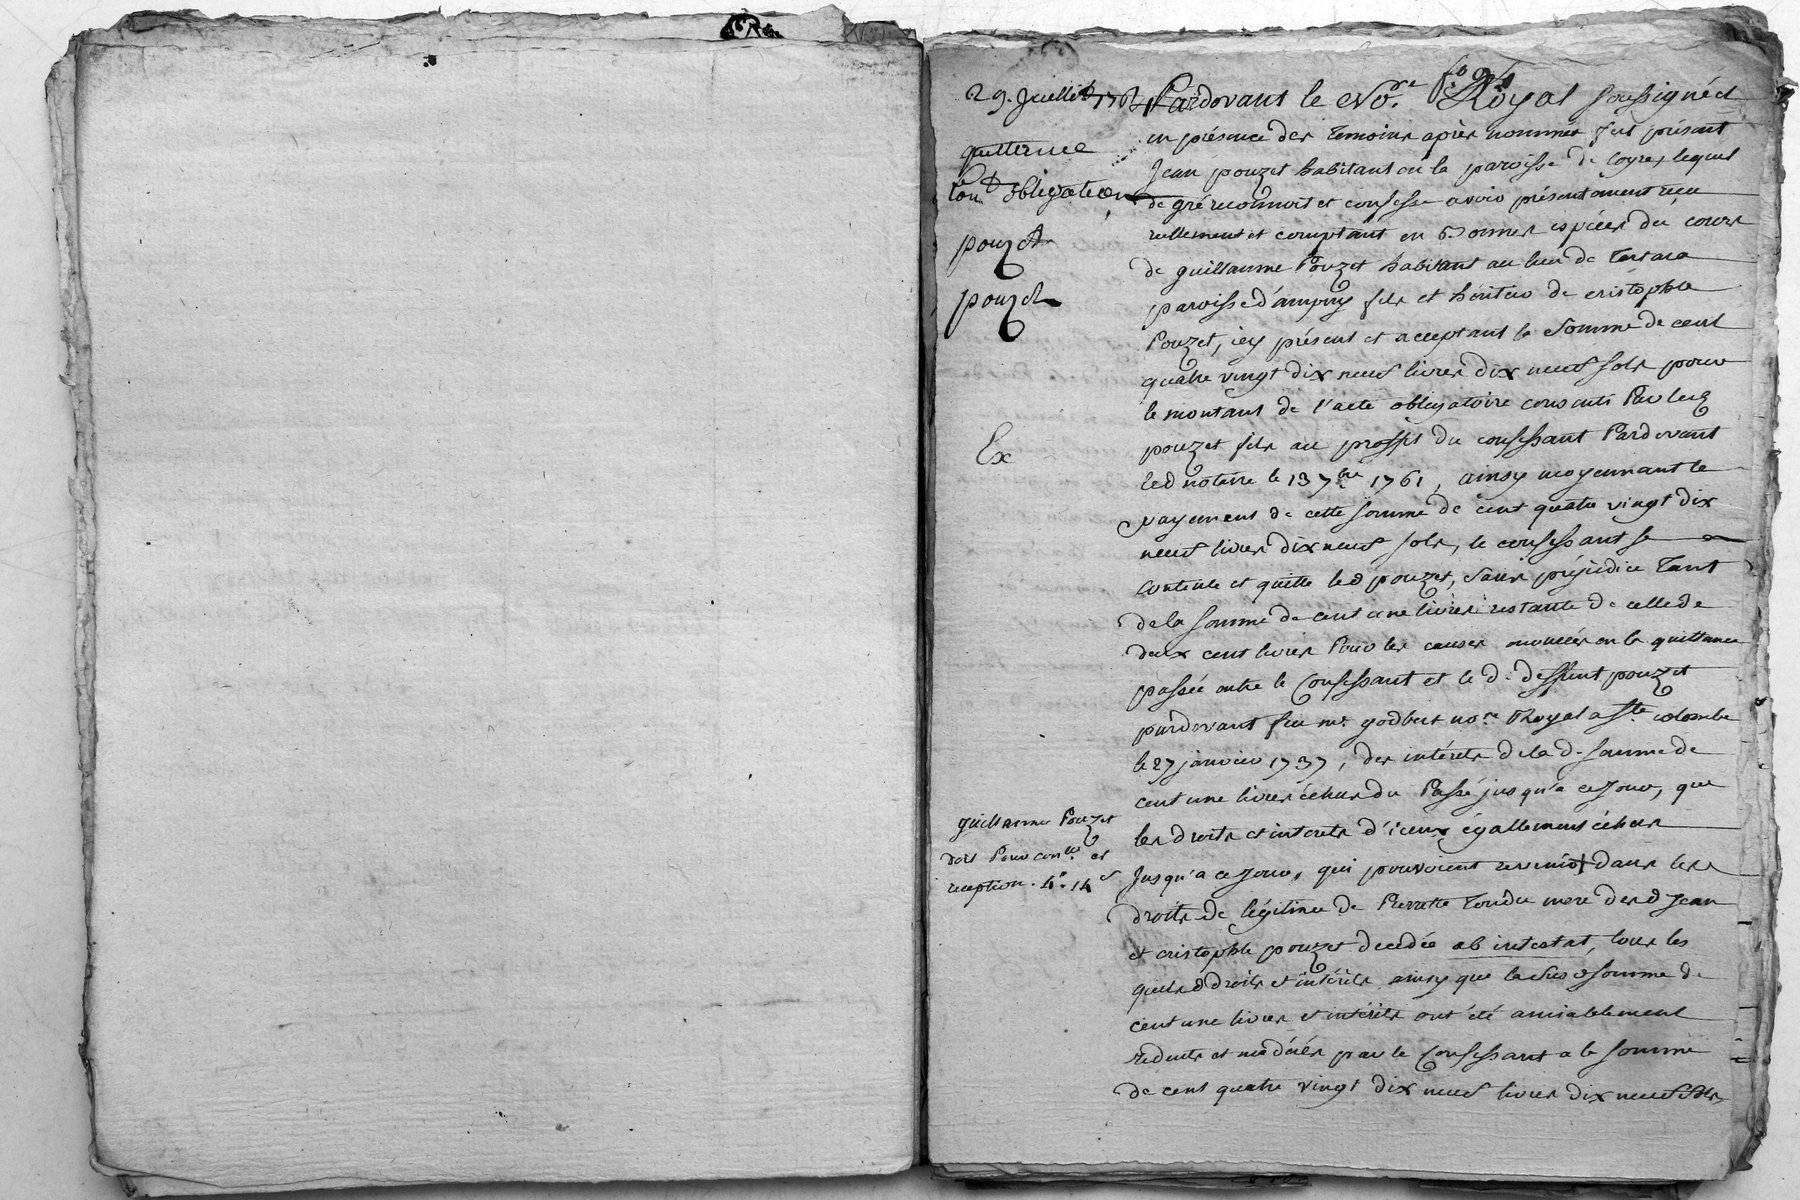 29. Juellet 176
quittence
con.d obligation
pouzet
pouzet
Ex
guillaume Pouzet
doit Pour con.lle et
reception. 4# 14s
Pardovant le No.re Royal soussigné et
en présence des temoins après nommés fut présent
Jean pouzet habitant en la paroisse de loyres lequel
de gré reconnoit et confesse avoir présentement reçu
réellement et comptant en bonnes espéces du cours
de guillaume Pouzet habitant au lieu de
paroisse d'ampuy fils et héritier de cristophle
Pouzet, icy présent et acceptant la somme de cent
quatre vingt dix neuf livres dix neuf sols pour
le montant de l'acte obligatoire consenti Par led
pouzet fils au proffit du confessant Pardevant
led notaire le 13 7bre 1761, ainsy moyennant le
payement de cette somme de cent quatre vingt dix
neuf livres dix neuf sols, le confessant se
contente et quitte led pouzet, sans préjudice tant
de la somme de cent une livres restante de celle de
deux cent livres Pour les causes enoncées en la quittance
passée entre le Confessant et le d. deffunt pouzet
pardevant feu mr. godbert no.re Royal a Ste colombe
le 27 janvier 1737, des intérets de la d. somme de
cent une livres échus du Passé jusqu'a ce jour, que
les droits et interets d'iceux égallement échus
Jusqu'a ce jour, qui pouvoient revenir dans les
droits de légitime de Pierrette mere desd Jean
et cristophle pouzet decedée ab intestat, tous les
quels d droits et intérets, ainsy que la susd somme de
cent une livres et intérêts ont été amiablement
reduits et modérés par le Confessant a la somme
de cent quatre vingt dix neuf livres dix neuf sols,